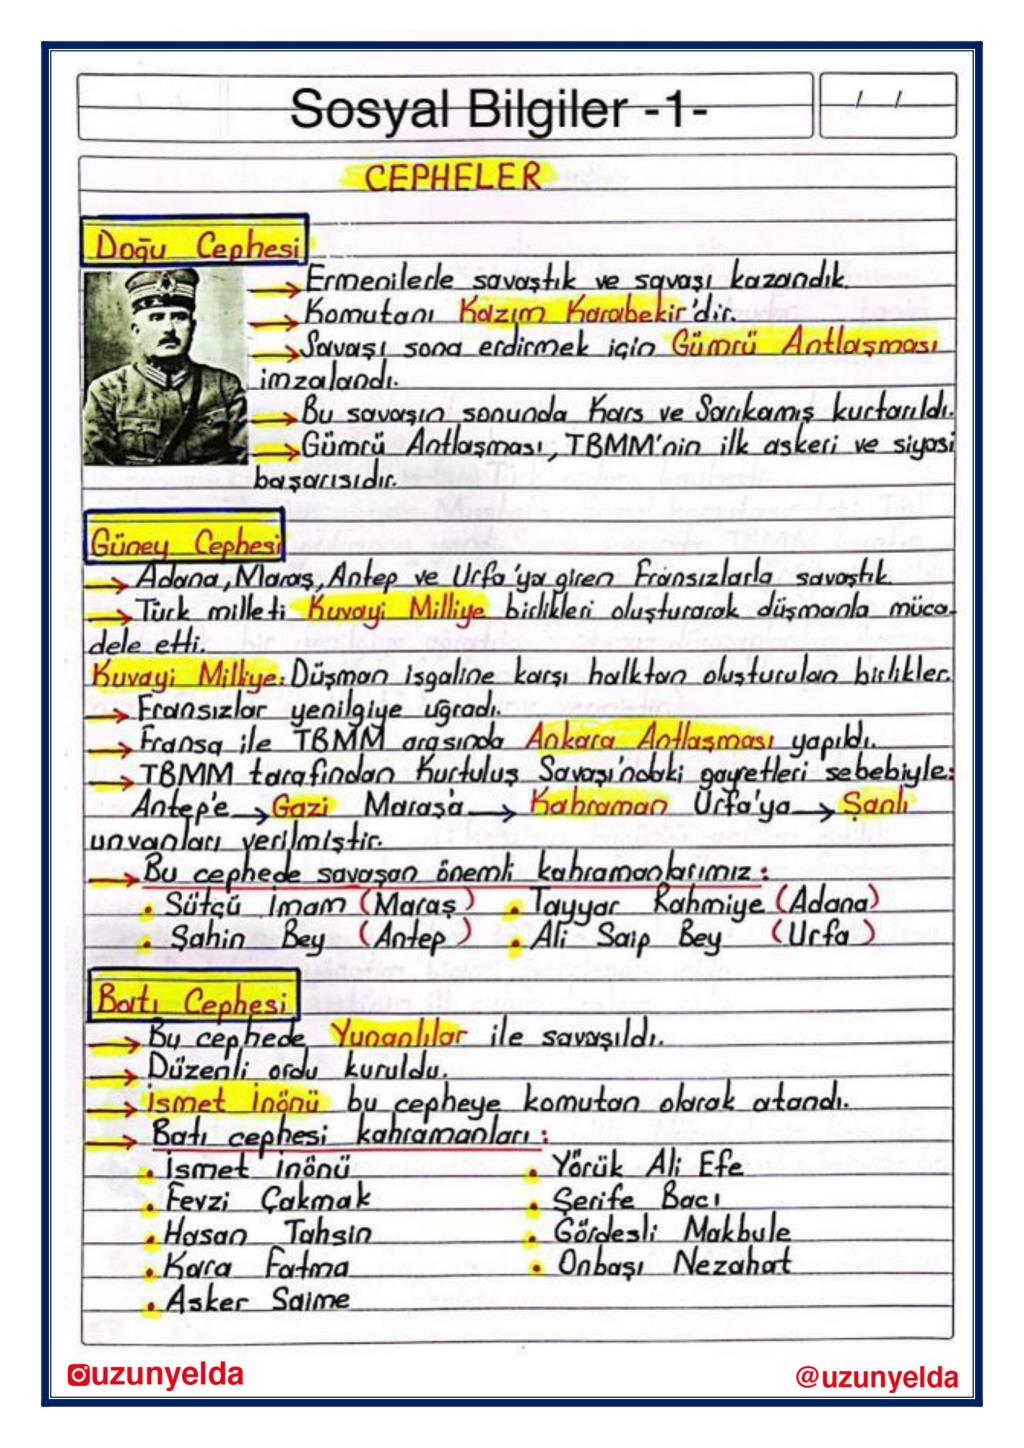 Sosyal Bilgiler -1-
/ /
CEPHELER
Doğu Cephesi
→ Ermenilerle savaştık ve savaşı kazandık.
→ Komutanı Kazım Karabekir'dir.
→ Savaşı sona erdirmek için Gümrü Antlaşması
imzalandı.
→ Bu savaşın sonunda Kars ve Sarıkamış kurtarıldı.
→ Gümrü Antlaşması, TBMM'nin ilk askeri ve siyasi
başarısıdır.
Güney Cephesi
→ Adana, Maraş, Antep ve Urfa'ya giren Fransızlarla savaştık.
→ Türk milleti Kuvayi Milliye birlikleri oluşturarak düşmanla müca-
dele etti.
Kuvayi Milliye: Düşman işgaline karşı halktan oluşturulan birlikler.
→ Fransızlar yenilgiye uğradı.
→ Fransa ile TBMM arasında Ankara Antlaşması yapıldı.
→ TBMM tarafından Kurtuluş Savaşı'ndaki gayretleri sebebiyle:
Antep'e → Gazi Maraş'a → Kahraman Urfa'ya → Şanlı
unvanları verilmiştir.
→ Bu cephede savaşan önemli kahramanlarımız:
• Sütçü İmam (Maraş) • Tayyar Rahmiye (Adana)
• Şahin Bey (Antep) • Ali Saip Bey (Urfa)
Batı Cephesi
→ Bu cephede Yunanlılar ile savaşıldı.
→ Düzenli ordu kuruldu.
→ İsmet İnönü bu cepheye komutan olarak atandı.
→ Batı cephesi kahramanları:
• İsmet İnönü • Yörük Ali Efe
• Fevzi Çakmak • Şerife Bacı
• Hasan Tahsin • Gördesli Makbule
• Kara Fatma • Onbaşı Nezahat
• Asker Saime
uzunyelda @uzunyelda